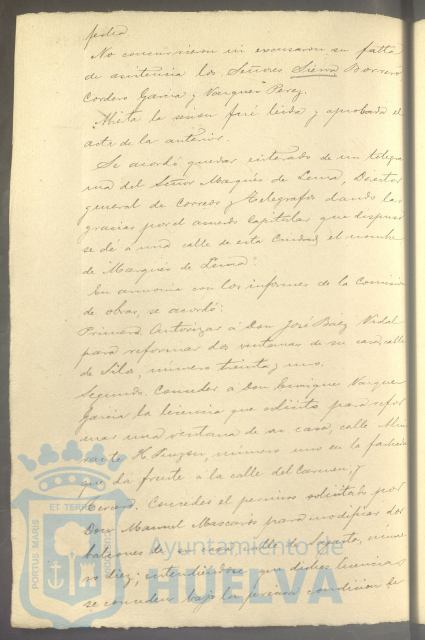 No concurrieron ni excusaron su falta
de asistencia los Señores Sierra Borrero
Cordero Garcia y Vazquez Perez.
Abierta la sesion fué leida y aprobada el
acta de la anterior.
Se acordó quedar enterado de un telegra
ma del Señor Marqués de Lema, Director
general de Correos y Telegrafos dando las
gracias por el acuerdo Capitular que dispuso
se dé a una calle de esta Ciudad el nombre
de Marqués de Lema.
En armonia con los informes de la Comision
de obras, se acordó:
Primero. Autorizar á Don José Báez Vidal
para reformar dos ventanas de su casa, calle
de Silo, número treinta y uno.
Segundo. Conceder á Don Enrique Vazquez
Garcia la licencia que solicita para refor
mar una ventana de su casa, calle Almi
rante H. Pinzon, número uno en la fachada
que da frente á la calle del Carmen, y
Tercero. Concedes el permiso solicitado por
Don Manuel Mascarós para modificar dos
balcones de su casa, calle de Sagasta, núme
ro diez; entendiendose que dichas licencias
se conceden bajo la precisa condicion de
PORTUS MARIS ET TERRAE
Ayuntamiento de
HUELVA